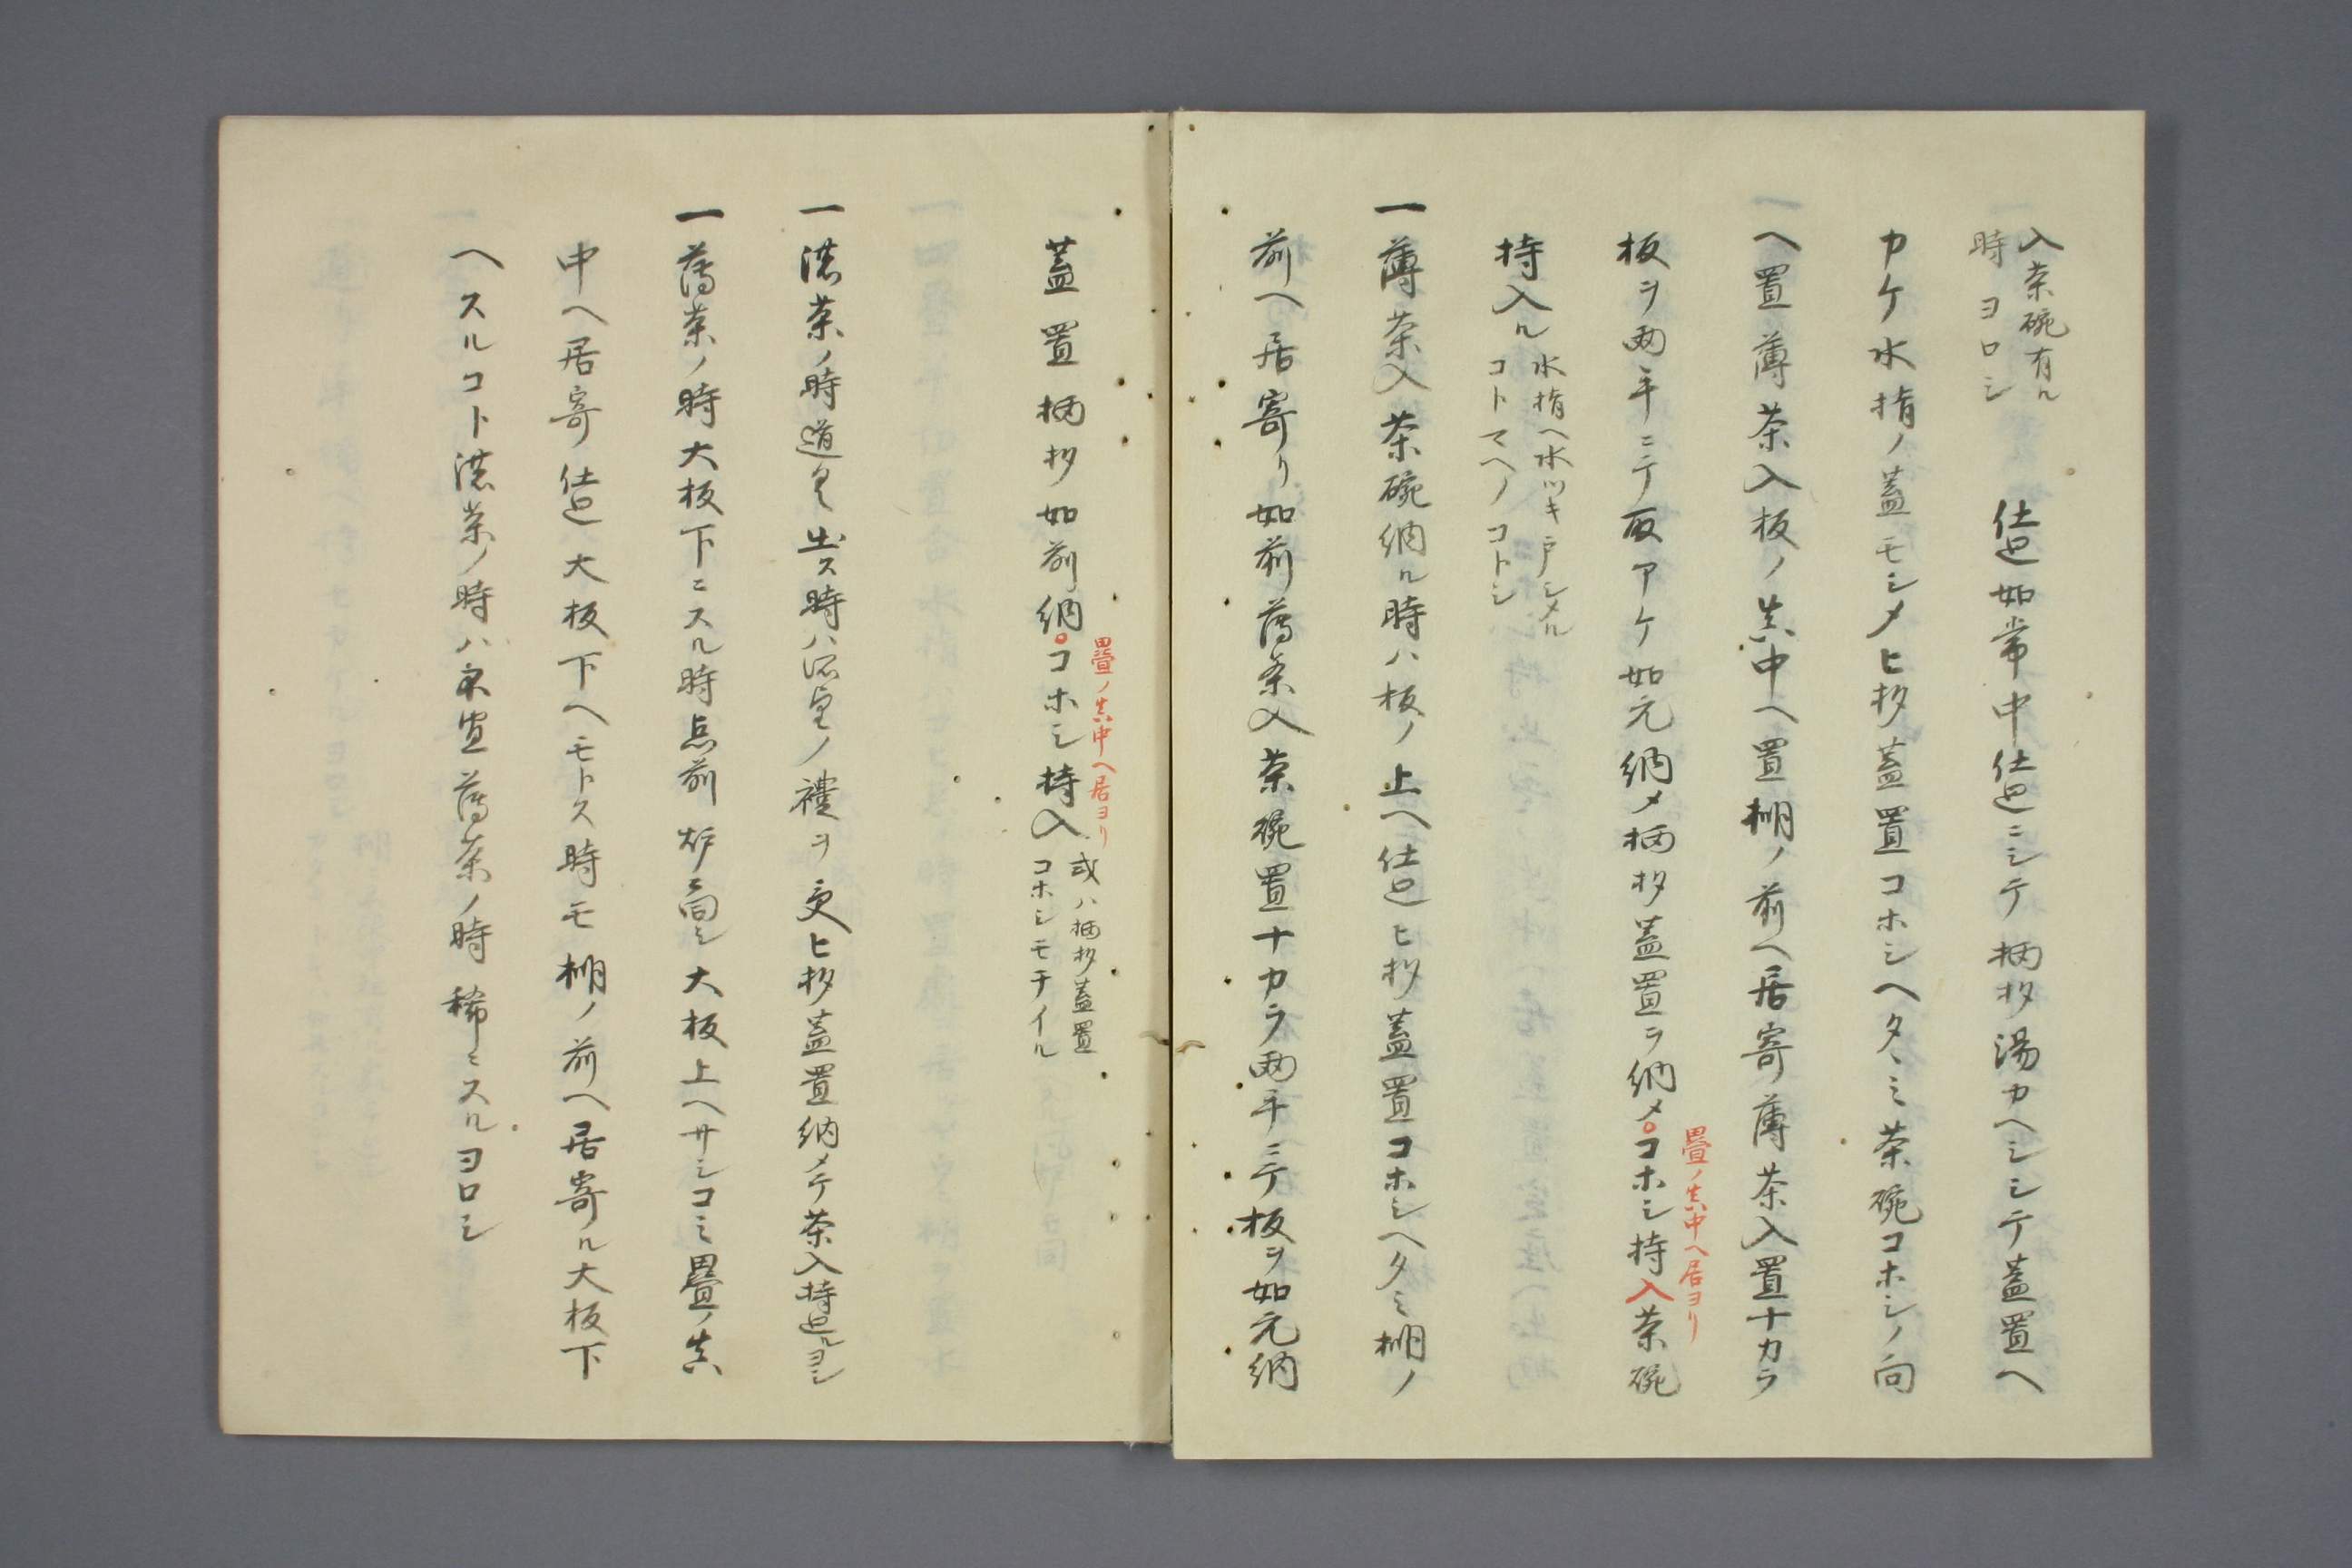 入茶碗有ル
時ヨロシ
仕廻如常中仕廻ニシテ柄杓湯カヘシシテ蓋置ヘ
カケ水指ノ蓋モシメヒ杓蓋置コホシヘタヽミ茶碗コホシノ向
ヘ置薄茶入板ノ真中ヘ置棚ノ前ヘ居寄薄茶入置十カラ
板ヲ両手ニテ取アケ如元納メ柄杓蓋置ヲ納メ○コホシ持入茶碗
畳ノ真中ヘ居ヨリ
持入ル
水指ヘ水ツキ戸シメル
コトマヘノコトシ
一薄茶入茶碗納ル時ハ板ノ上ヘ仕廻ヒ杓蓋置コホシヘタヽミ棚ノ
前ヘ居寄リ如前薄茶入茶碗置十カラ両手ニテ板ヲ如元納
蓋置柄杓如前納○コホシ持入
畳ノ真中ヘ居ヨリ
或ハ柄杓蓋置
コホシモチイル
一濃茶ノ時道具出ス時ハ道具ノ禮ヲ受ヒ杓蓋置納メテ茶入持廻ルヨシ
一薄茶ノ時大板下ニスル時点前炉ニ同シ大板上ヘサシコミ畳ノ真
中ヘ居寄仕廻大板下ヘモトス時モ棚ノ前ヘ居寄ル大板下
ヘスルコト濃茶ノ時ハ不宜薄茶ノ時稀ニスルヨロシ